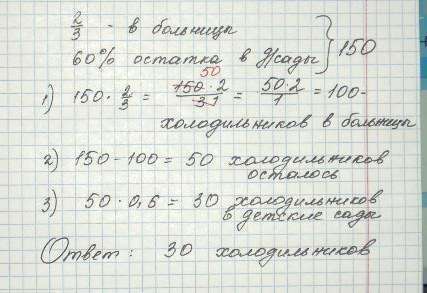 2/3 - в больницы
60% остатка в д/сады } 150
1) 150 · 2/3 = 150 · 2 / 3 · 1 = 50 · 2 / 1 = 100 -
50
холодильников в больницы
2) 150 - 100 = 50 холодильников
осталось
3) 50 · 0,6 = 30 холодильников
в детские сады
Ответ: 30 холодильников